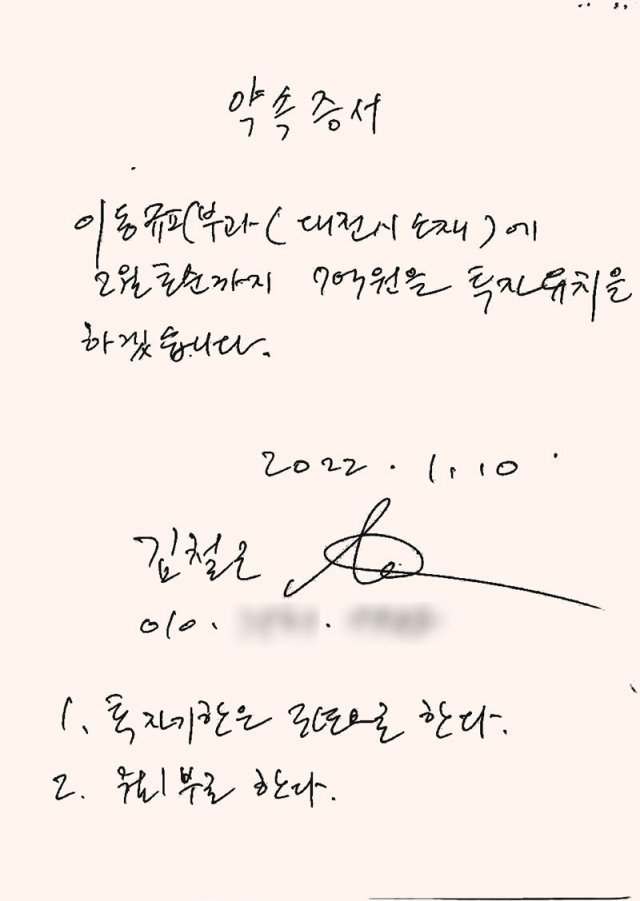 약속증서
이동규피부과(대전시 소재)에
2월초순까지 7억원을 투자유치을
하겠습니다.
2022. 1. 10
김철근
010.
1. 투자기한은 3년으로 한다.
2. 한다.